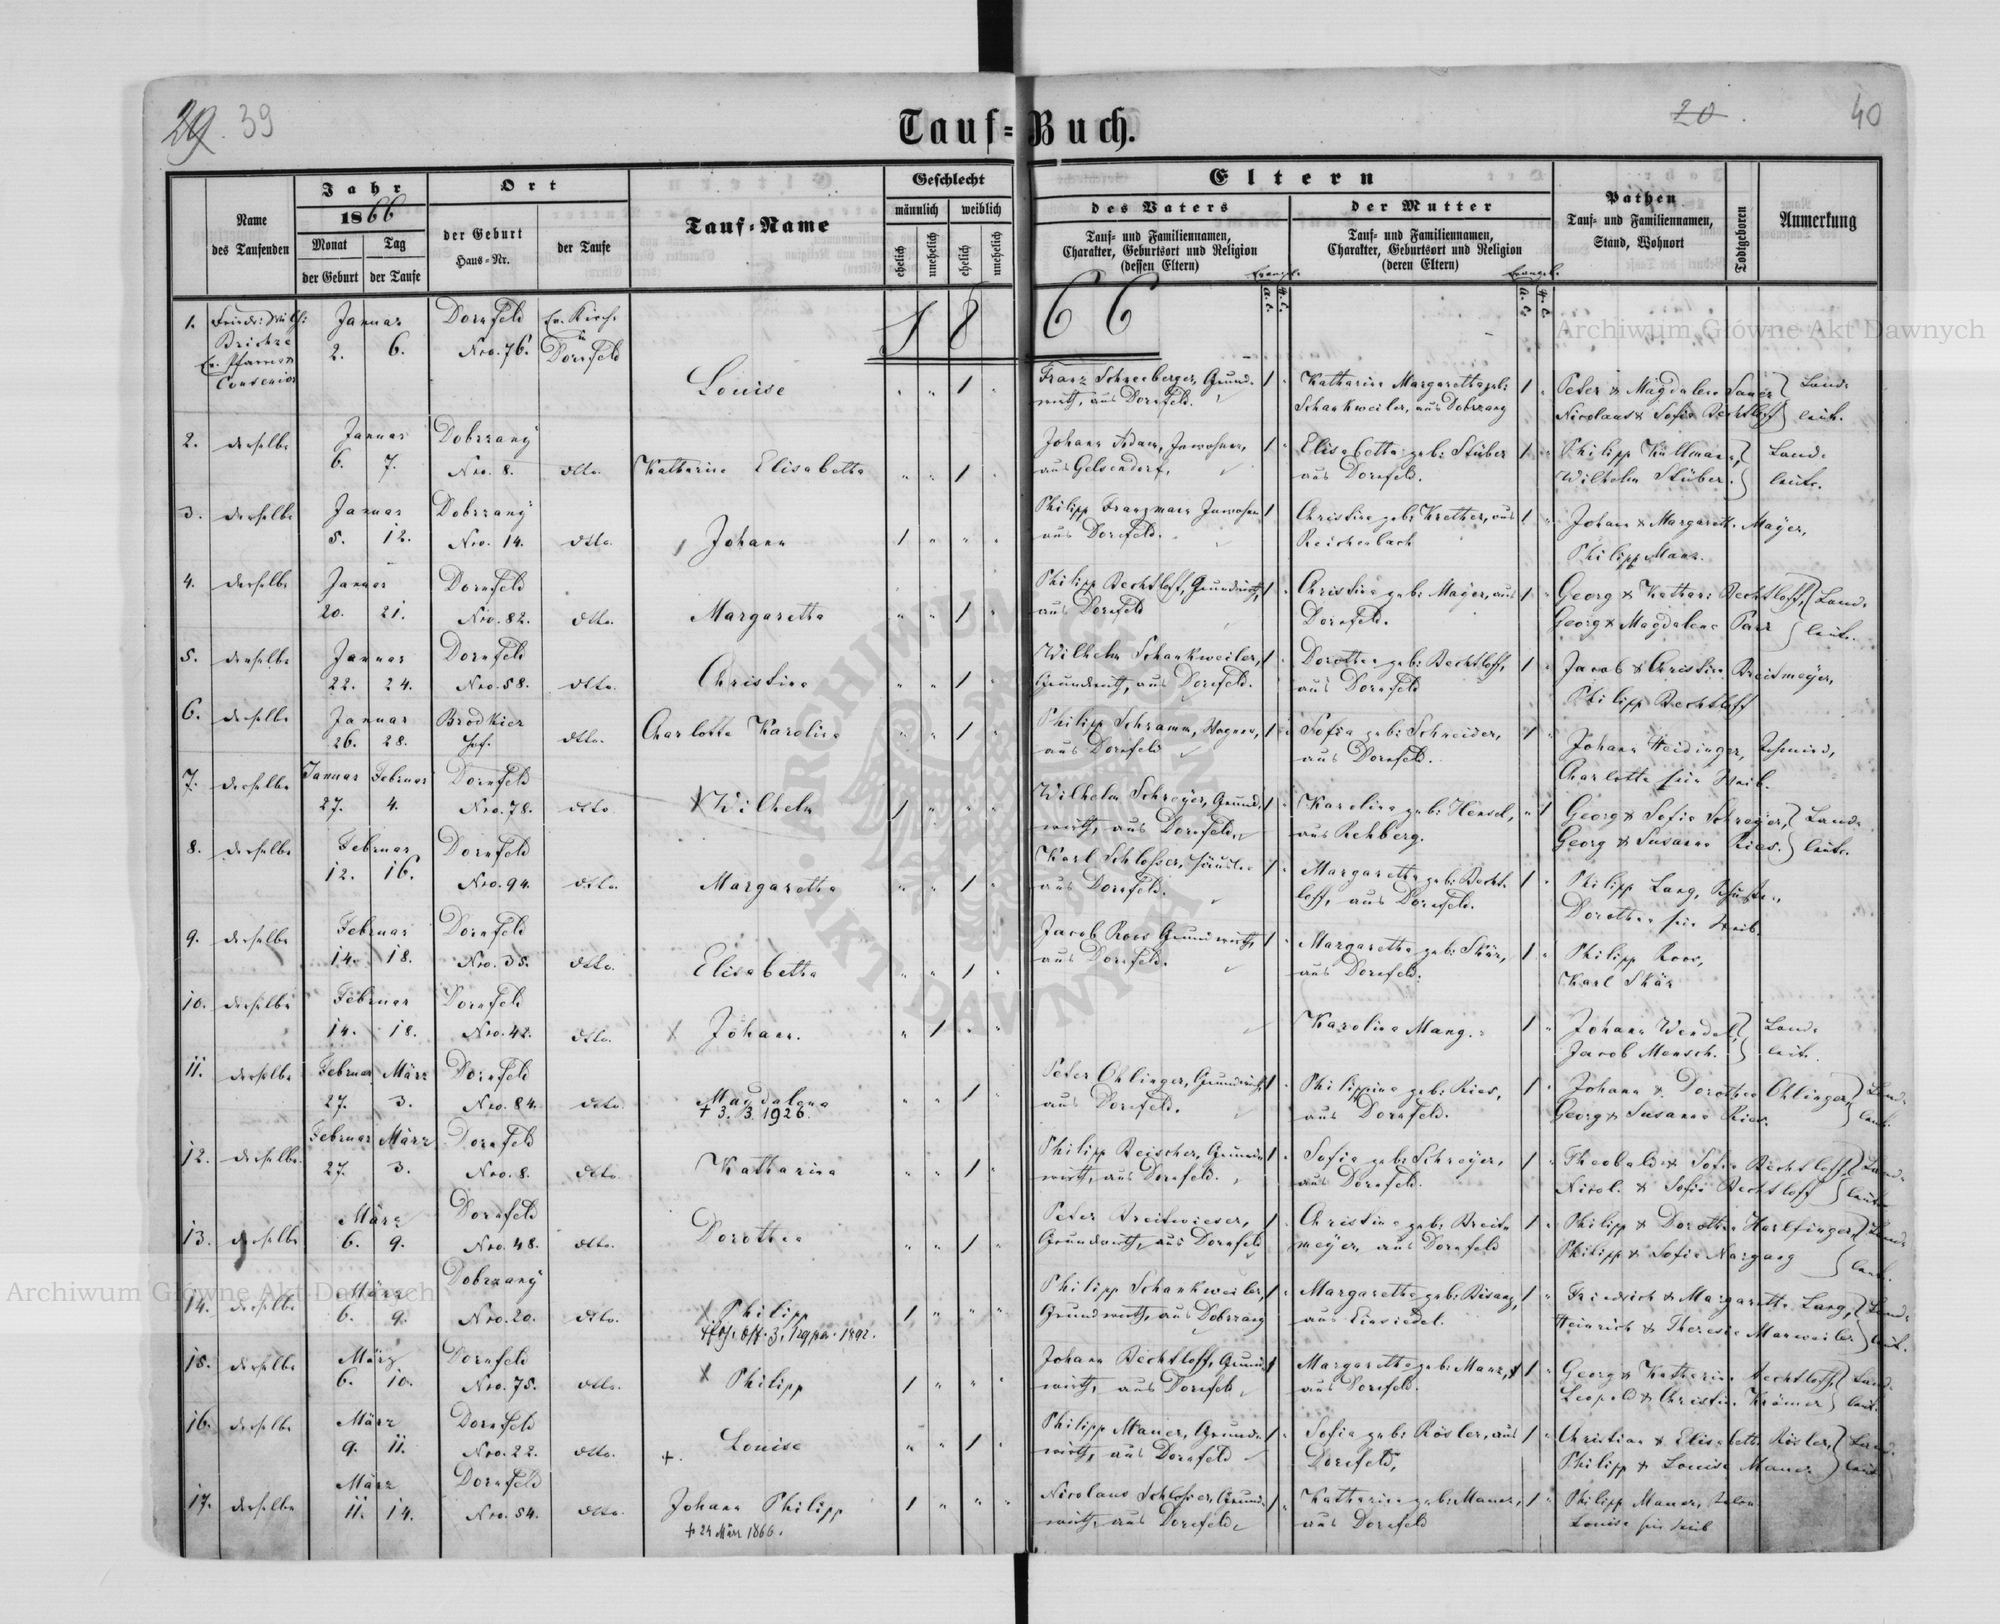 29. 39
Tauf=Buch.
20. 40
Name
des Taufenden
Jahr
1866
Monat
Tag
der Geburt
der Taufe
Ort
der Geburt
Haus=Nr.
der Taufe
Tauf=Name
Geschlecht
männlich
weiblich
ehelich
unehelich
ehelich
unehelich
Eltern
des Vaters
Tauf= und Familiennamen,
Charakter, Geburtsort und Religion
(dessen Eltern)
der Mutter
Tauf= und Familiennamen,
Charakter, Geburtsort und Religion
(deren Eltern)
Pathen
Tauf= und Familiennamen,
Stand, Wohnort
Todtgeboren
Anmerkung
1866
1. Januar Dornfeld Ev. Kirche
2. 6. Nro. 76. in Dornfeld
Ev. Pfarrer
Louise 1 Franz Schneeberger, Grund-
wirth, aus Dornfeld. 1 Katharina Margaretha geb:
Schankweiler, aus Dobrzany 1 Peter & Magdalena Sauer
Nicolaus & Sofia Bechtloff Land-
leute.
2. derselbe Januar Dobrzany
6. 7. Nro. 8. dtto. Katharina Elisabetha 1 Johann Adam, Inwohner,
aus Gelsendorf, 1 Elisabetha geb: Stüber
aus Dornfeld. 1 Philipp Kullmann,
Wilhelm Stüber. Land-
leute.
3. derselbe Januar Dobrzany
5. 12. Nro. 14. dtto. Johann 1 Philipp Franzmann Inwohner
aus Dornfeld. 1 Christina geb: Krether, aus
Reichenbach 1 Johann & Margareth. Mayer,
Philipp Manz.
4. derselbe Januar Dornfeld
20. 21. Nro. 82. dtto. Margaretha 1 Philipp Bechtloff, Grundwirth,
aus Dornfeld 1 Christina geb: Mayer, aus
Dornfeld. 1 Georg & Kathari Bechtloff,
Georg & Magdalena Parr Land-
leute.
5. derselbe Januar Dornfeld
22. 24. Nro. 58. dtto. Christina 1 Wilhelm Schankweiler,
Grundwirth, aus Dornfeld. 1 Dorothea geb: Bechtloff,
aus Dornfeld 1 Jacob & Christina Breitmeyer,
Philipp Bechtloff
6. derselbe Januar Brodkier
26. 28. Hof. dtto. Charlotte Karolina 1 Philipp Schramm, Wagner,
aus Dornfeld 1 Sofia geb: Schneider,
aus Dornfeld. 1 Johann Heidinger, Schmied,
Charlotte sein Weib.
7. derselbe Januar Februar Dornfeld
27. 4. Nro. 78. dtto Wilhelm 1 Wilhelm Schreyer, Grund-
wirth, aus Dornfeld, 1 Karolina geb: Hensel,
aus Rehberg. 1 Georg & Sofia Schreyer,
Georg & Susanna Ries. Land-
leute.
8. derselbe Februar Dornfeld
12. 16. Nro. 94. dtto. Margaretha 1 Karl Schlosser, Häusler
aus Dornfeld. 1 Margaretha geb: Becht-
loff, aus Dornfeld. 1 Philipp Lang,
Dorothea sein Weib.
9. derselbe Februar Dornfeld
14. 18. Nro. 35. dtto. Elisabetha 1 Jacob Roos Grundwirth,
aus Dornfeld. 1 Margaretha geb: Skär,
aus Dornfeld. 1 Philipp Roos,
Karl Skär
10. derselbe Februar Dornfeld
14. 18. Nro. 42. dtto. Johann. 1 Karolina Mang. 1 Johann Wendel,
Jacob Mensch. Land-
leute.
11. derselbe Februar März Dornfeld
27. 3. Nro. 84. dtto Magdalena 1
+ 3. 3. 1926. Peter Ohlinger, Grundwirth,
aus Dornfeld. 1 Philippina geb: Ries,
aus Dornfeld. 1 Johann & Dorothea Ohlinger,
Georg & Susanna Ries. Land-
leute.
12. derselbe Februar März Dornfeld
27. 3. Nro. 8. dtto. Katharina 1 Philipp Beischer, Grund-
wirth, aus Dornfeld. 1 Sofia geb: Schreyer,
aus Dornfeld. 1 Theobald & Sofia Bechtloff,
Nicol. & Sofia Bechtloff Land-
leute
13. derselbe März Dornfeld
6. 9. Nro. 48. dtto. Dorothea 1 Peter Breitwieser,
Grundwirth, aus Dornfeld 1 Christina geb: Breit-
meyer, aus Dornfeld 1 Philipp & Dorothea Harlfinger,
Philipp & Sofia Nargang Land-
leute.
14. derselbe März Dobrzany
6. 9. Nro. 20. dtto. Philipp 1 Philipp Schankweiler,
Grundwirth, aus Dobrzany 1 Margaretha geb: Bisanz,
aus Einsiedel. 1 Friedrich & Margaretha Lang,
Heinrich & Theresia Manweiler Land-
leute.
15. derselbe März Dornfeld
6. 10. Nro. 75. dtto. Philipp 1 Johann Bechtloff, Grund-
wirth, aus Dornfeld 1 Margaretha geb: Manz,
aus Dornfeld. 1 Georg & Katharina Bechtloff
Leopold & Christin. Krämer Land-
leute.
16. derselbe März Dornfeld
9. 11. Nro. 22. dtto. +. Louise 1 Philipp Mauer, Grund-
wirth, aus Dornfeld 1 Sofia geb: Rösler, aus
Dornfeld, 1 Christian & Elisabeth Rösler,
Philipp & Louise Mauer Land-
leute
17. derselbe März Dornfeld
11. 14. Nro. 54. dtto. Johann Philipp 1
+ 24 März 1866. Nicolaus Schlosser, Grund-
wirth, aus Dornfeld, 1 Katharina geb: Mauer,
aus Dornfeld 1 Philipp Mauer,
Louise sein Weib
Archiwum Główne Akt Dawnych
Archiwum Główne Akt Dawnych
ARCHIWUM GŁÓWNE AKT DAWNYCH